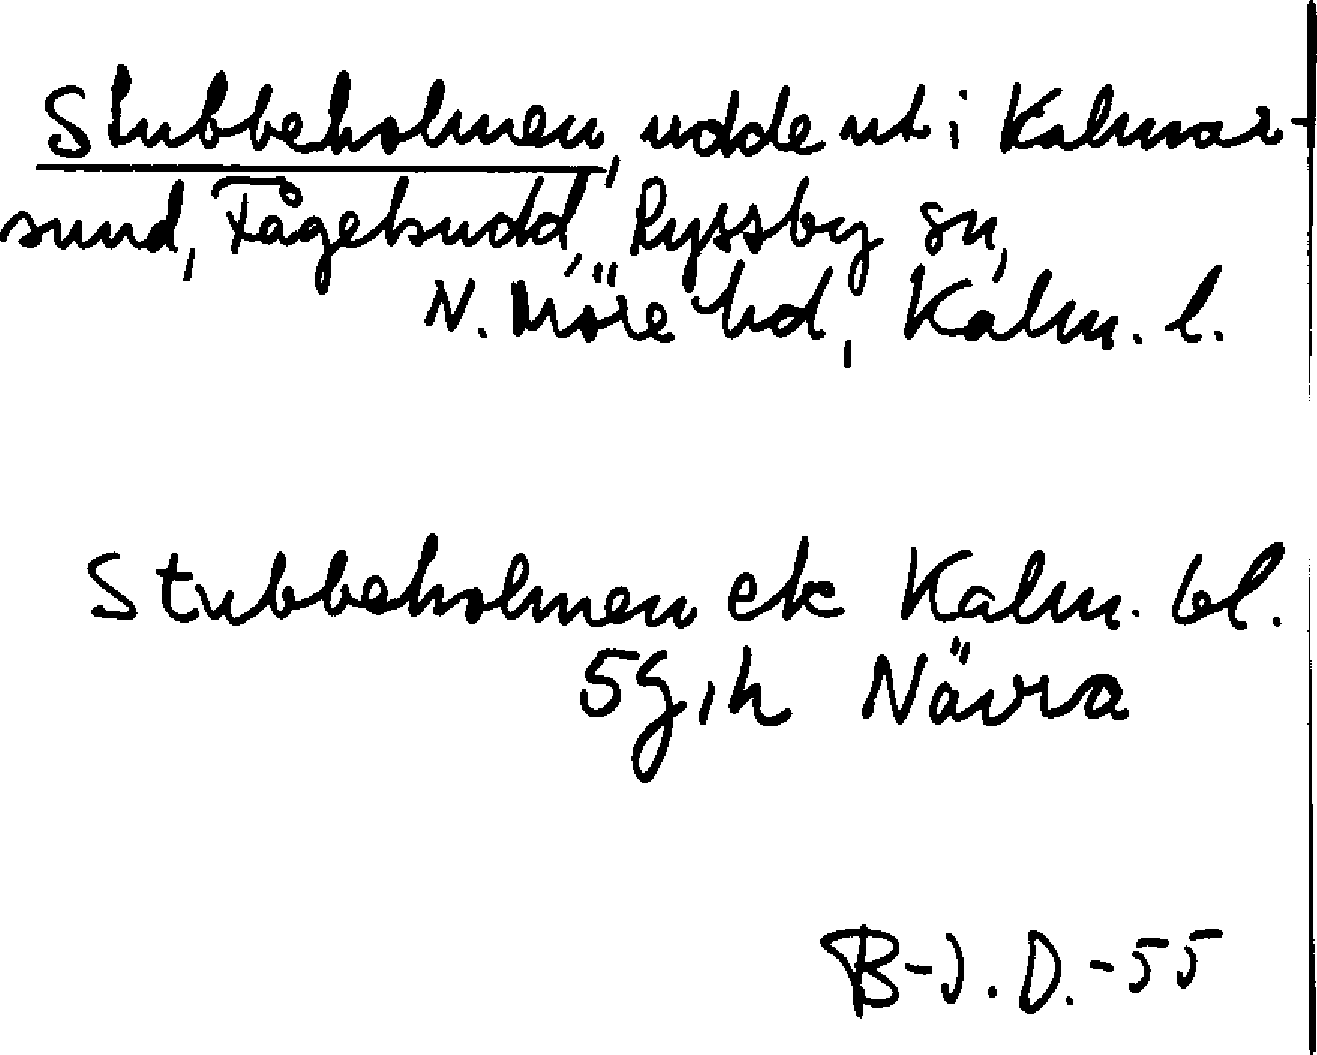 Stubbeholmen, udde ut i Kalmar-
sund, Fågebudd, Ryssby sn,
N. Möre hd, Kalm. l.
Stubbeholmen ek Kalm. bl.
5g,h Nävra
B-J.D.-55